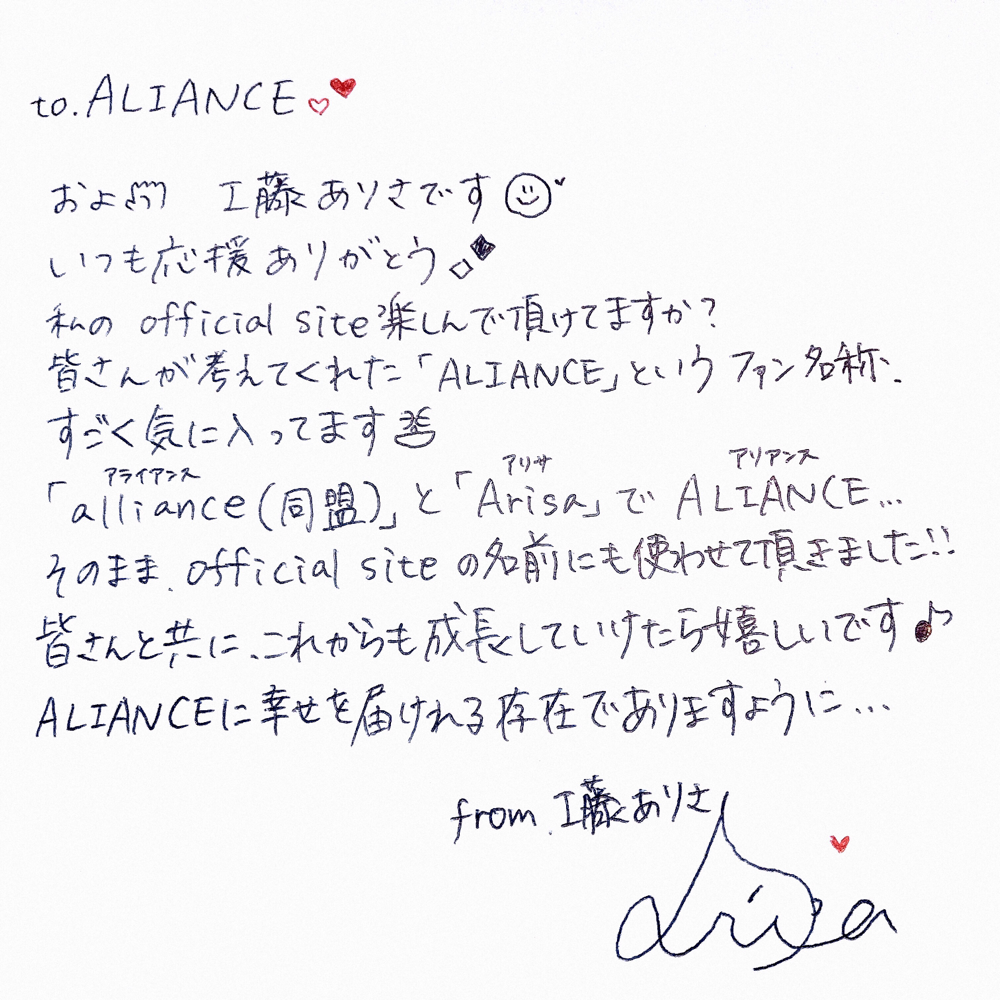 to.ALIANCE
およ 工藤ありさです
いつも応援ありがとう
私の official site 楽しんで頂けてますか?
皆さんが考えてくれた「ALIANCE」というファン名称、
すごく気に入ってます
アライアンス アリサ アリアンス
「alliance(同盟)」と「Arisa」で ALIANCE...
そのまま、official site の名前にも使わせて頂きました!!
皆さんと共に、これからも成長していけたら嬉しいです♪
ALIANCEに幸せを届けれる存在でありますように...
from.工藤ありさ
Arisa